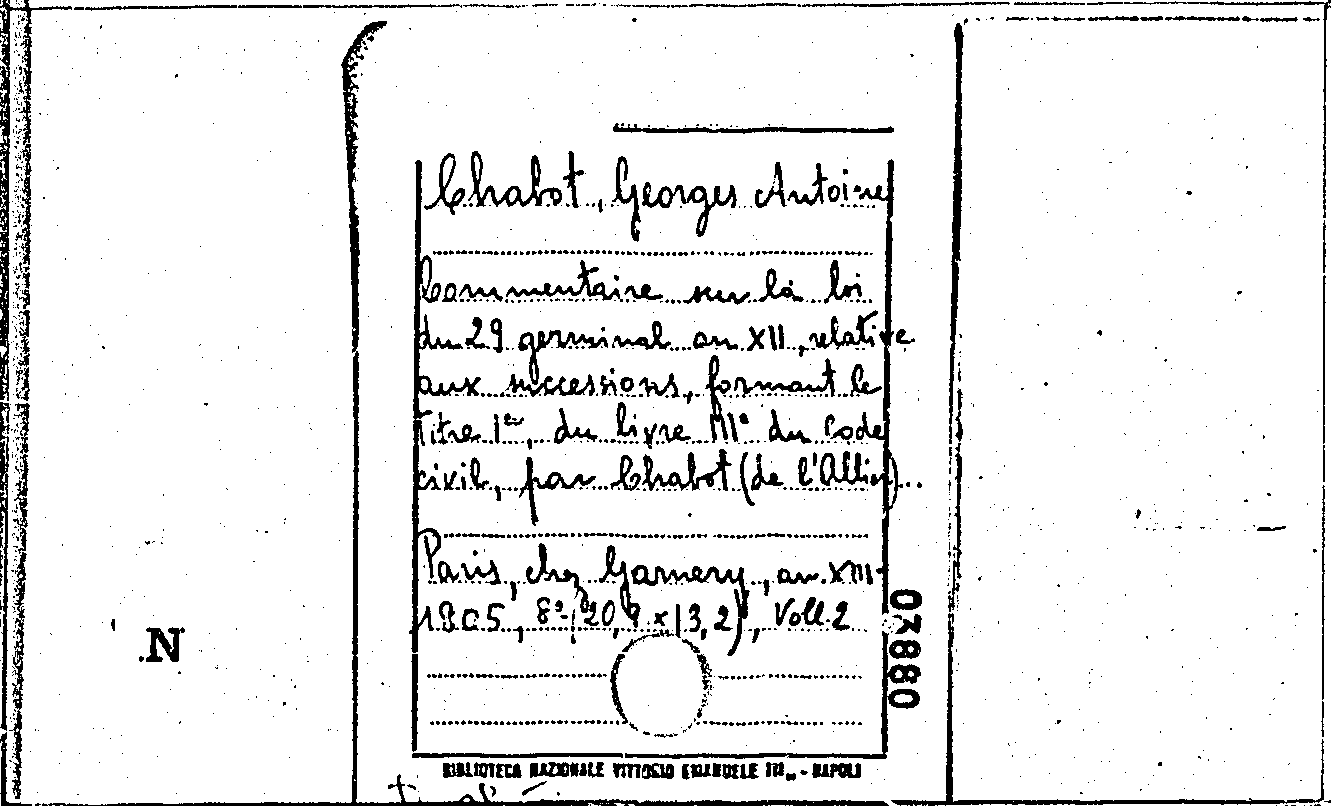 Chabot, Georges Antoine
Commentaire sur la loi
du 29 germinal an XII, relative
aux successions, formant le
titre Ier, du livre IIIe du Code
civil, par Chabot (de l'Allier)...
Paris, chez Garnery, an XIII-
1805, 8°-(20,9 x 13,2), Voll. 2
03880
.N
BIBLIOTECA NAZIONALE VITTORIO EMANUELE III - NAPOLI